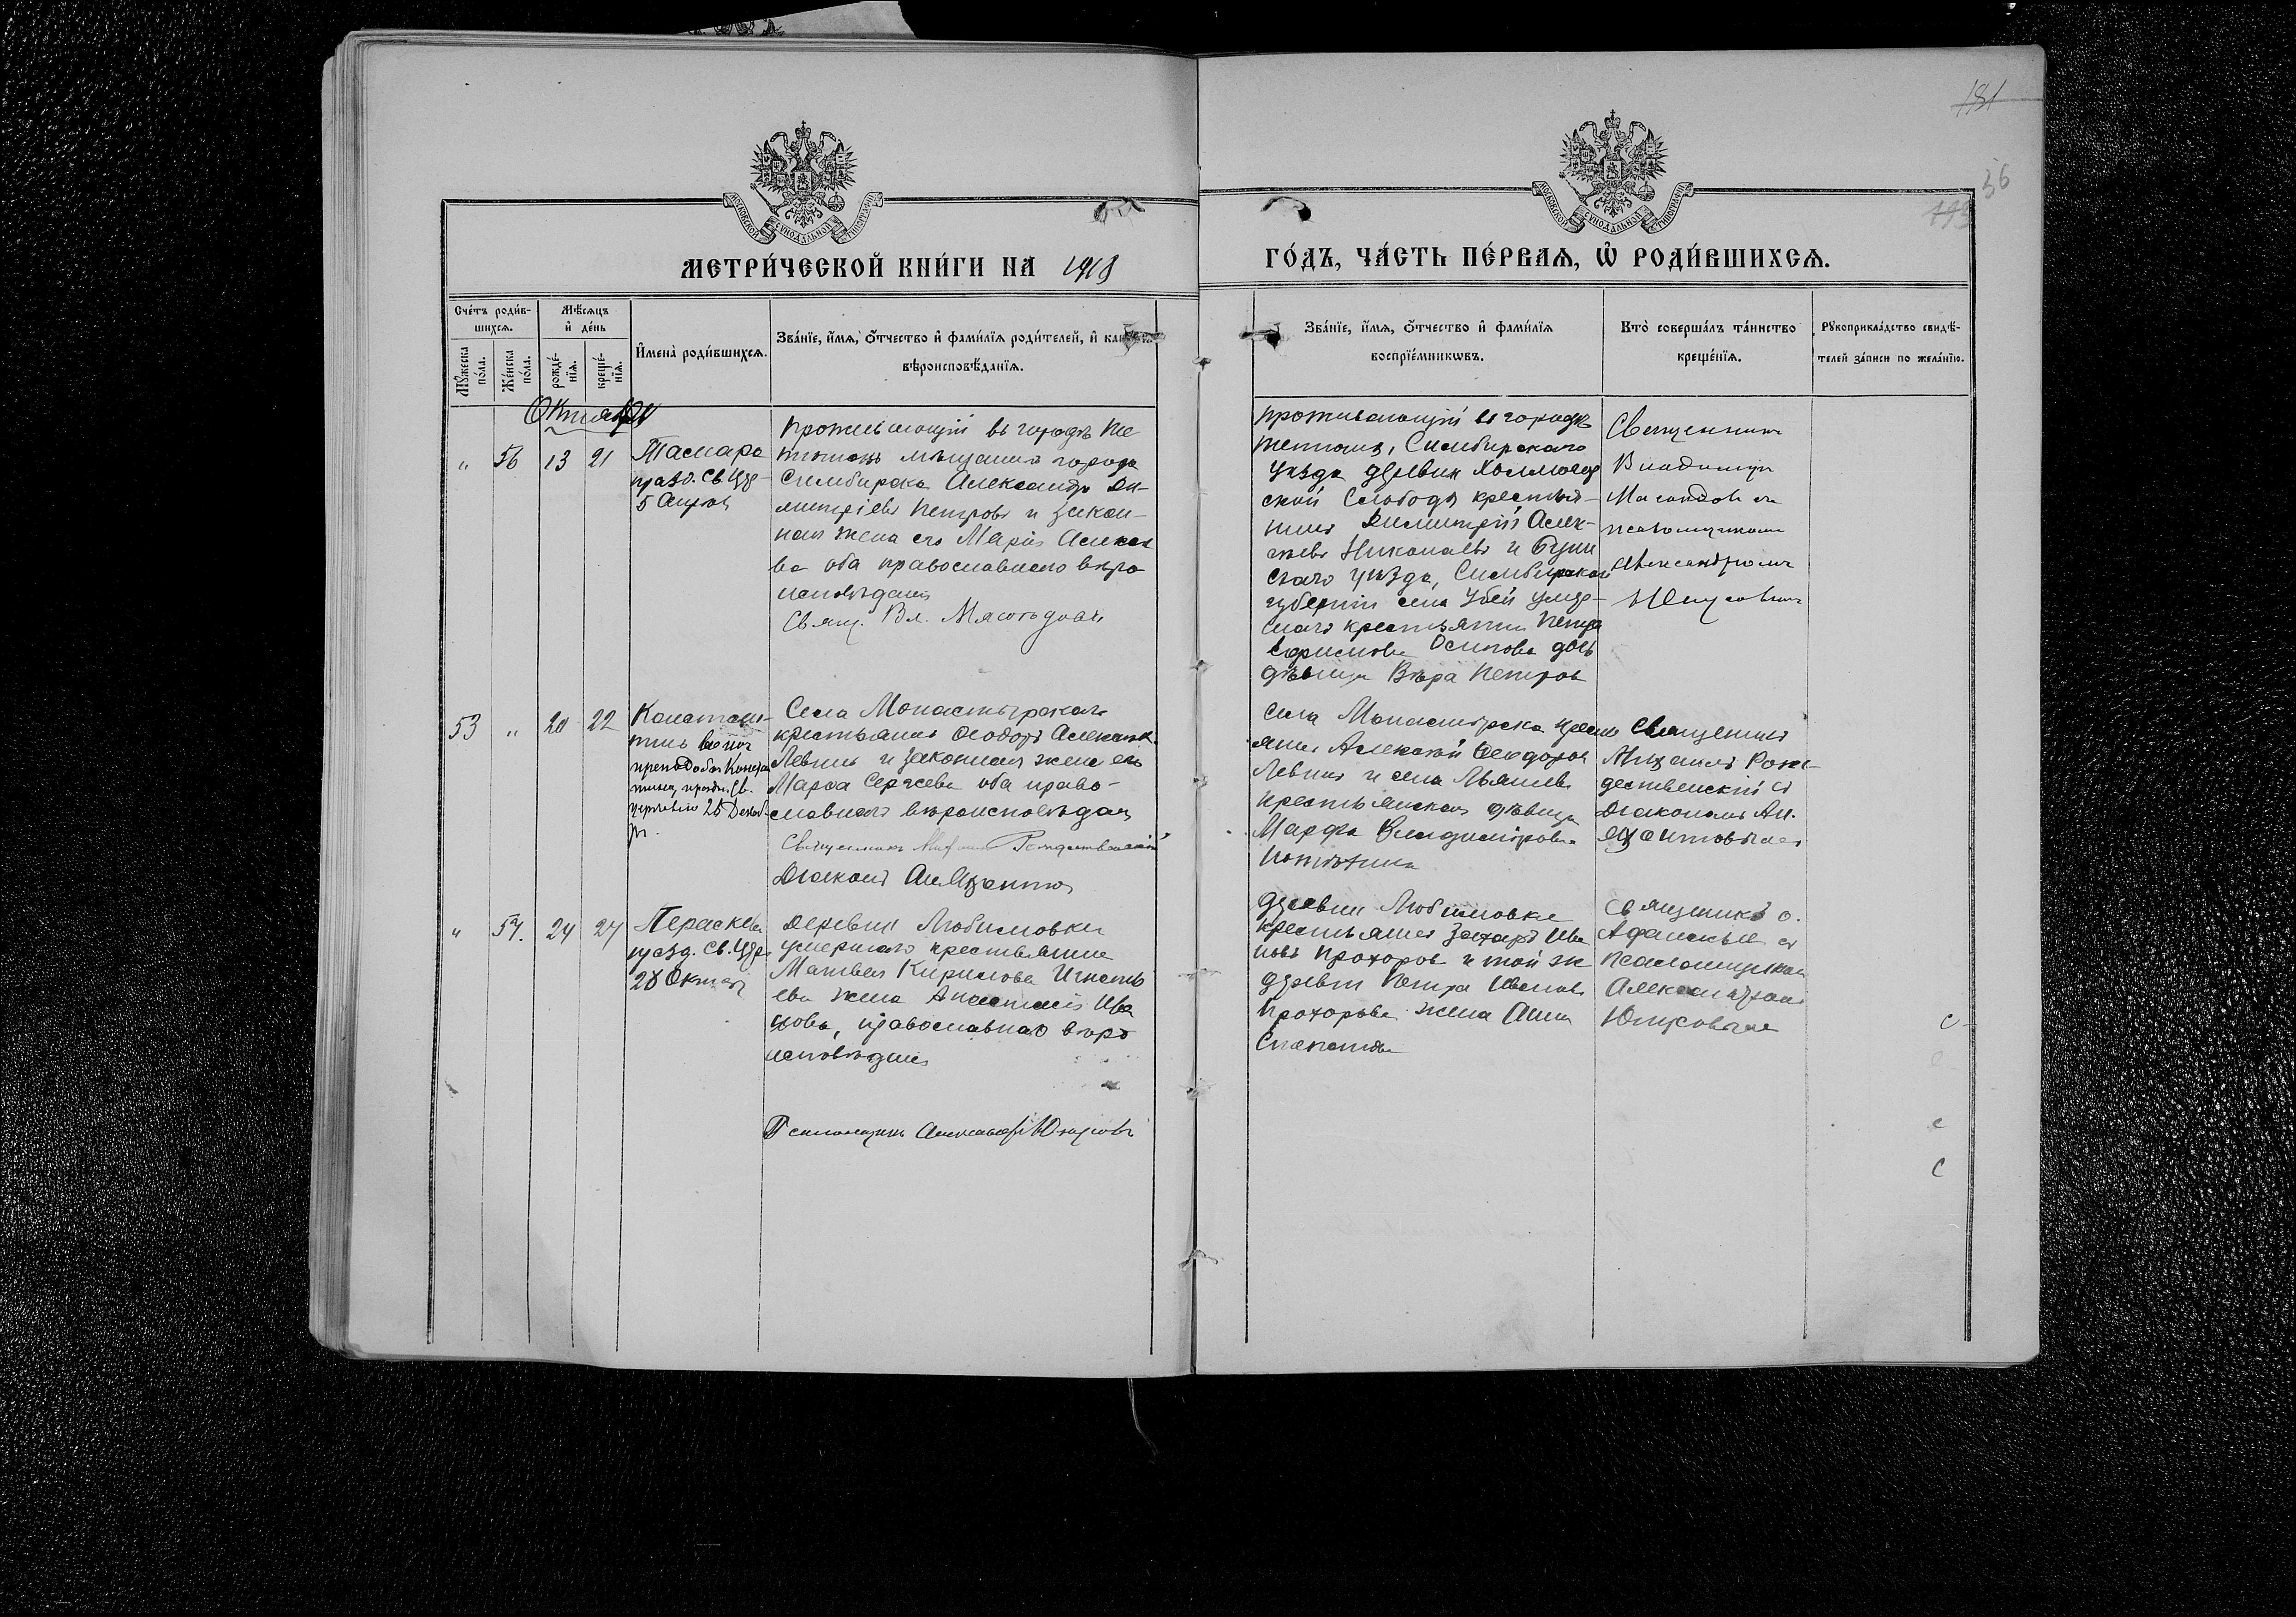 181
36
МОСКОВСКОЙ СѴНОДАЛЬНОЙ ТИПОГРАФІИ
МОСКОВСКОЙ СѴНОДАЛЬНОЙ ТИПОГРАФІИ
МЕТРИ́ЧЕСКОЙ КНИ́ГИ НА 1918
ГО́ДЪ, ЧА́СТЬ ПЕ́РВАЯ, Ѿ РОДИ́ВШИХСЯ.
Сче́тъ роди́в-
шихся.
Мꙋ́жеска по́ла.
Же́нска по́ла.
Мѣ́сяцъ
и҆ де́нь
рожде́-
нїя.
креще́-
нїя.
И҆мена̀ роди́вшихся.
Зва́нїе, и҆́мя, ѻ҆́тчество и҆ фами́лїя роди́телей, и҆
вѣроисповѣ́данїя.
Зва́нїе, и҆́мя, ѻ҆́тчество и҆ фами́лїя
воспрїе́мникѡвъ.
Кто̀ соверша́лъ та́инство
креще́нїя.
Рꙋкоприкла́дство свидѣ́-
телей за́писи по жела́нїю.
Октябрь
" 56 13 21
Тамара
празд. Св. Цер-
5 Апрѣля
Проживающій въ городѣ
мѣщанинъ города
Симбирска Александръ Ди-
митріевъ Петровъ и закон-
ная жена его Марія Алексѣ
ва оба православнаго вѣро
исповѣданія
Свящ. Вл. Мясоѣдовъ
проживающій въ городѣ
Симбирскаго
уѣзда деревни
ской Слободы крестья-
нинъ Димитрій Алек-
Николаевъ и Буин
скаго уѣзда, Симбирской
губерніи села Убей умер-
шаго крестьянина Петра
Ефимова Осипова дочь
дѣвица Вѣра Петрова
Священникъ
Владиміръ
Мясоѣдовъ съ
псаломщикомъ
Александромъ
53 " 20 22
Констан-
тинъ въ честь
преподобн. Констан
тина, праздн. Св.
церковью 26 Декаб-
ря.
Села Монастырскаго
крестьянинъ Ѳеодоръ Алексѣев.
Левинъ и законная жена его
Марѳа Сергѣева оба право-
славнаго вѣроисповѣданія
Священникъ Михаилъ Рождественскій
Діаконъ
Села Монастырска кресть
янинъ Алексѣй Ѳеодоровъ
Левинъ и села
крестьянская дѣвица
Марфа Владимірова
Священникъ
Михаилъ Рож-
дественскій съ
Діакономъ
" 57. 24 27
Параскева
празд. Св. Цер.
28 Октября
Деревни Любимовки
умершаго крестьянина
Матвея Кирилова Игнать
ева жена Анастасія Ива
нова, православнаго вѣро
исповѣданія
Псаломщикъ Александръ Юнусовъ
деревни Любимовки
крестьянинъ Захаръ Ива
новъ Прохоровъ и той же
деревни Петра Иванова
Прохорова жена Анна
Священникъ о.
Афанасьевъ съ
псаломщикомъ
Александромъ
Юнусовымъ